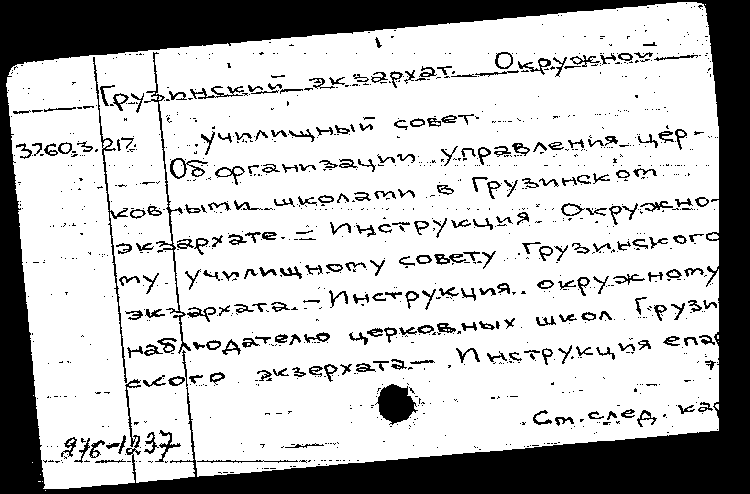 Грузинский экзархат. Окружной
3760.3.217. училищный совет.
Об организации управления цер-
ковными школами в Грузинском
экзархате. – Инструкция Окружно-
му училищному совету Грузинского
экзархата. – Инструкция окружному
наблюдателю церковных школ Грузи
ского экзерхата – Инструкция епар
См. след. кар
276-1237